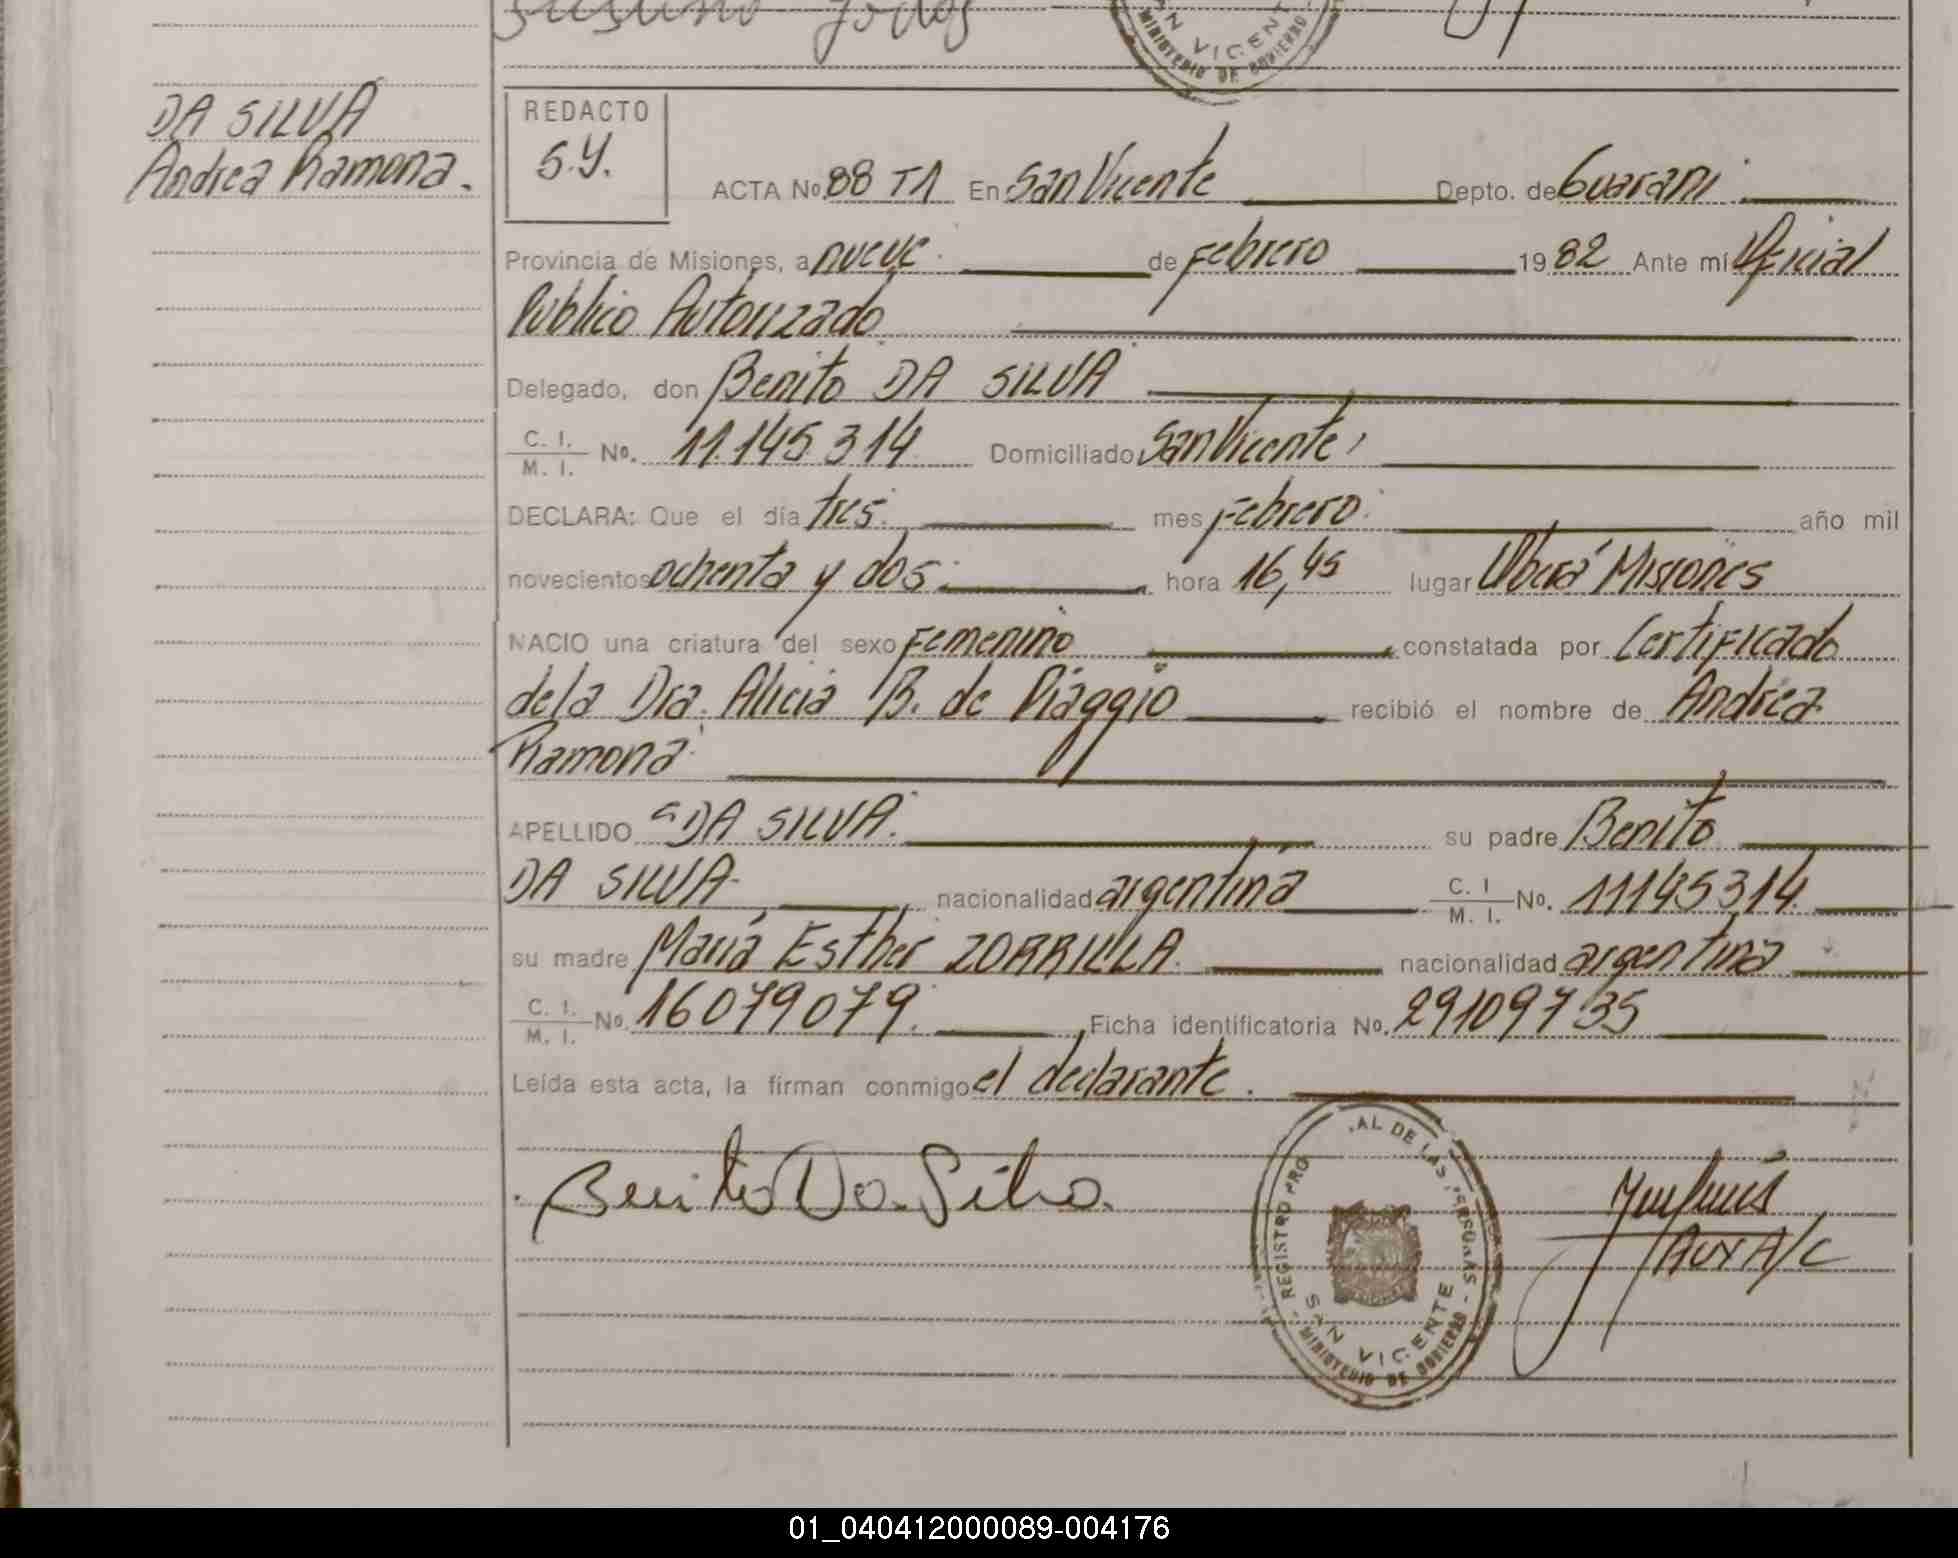 SAN VICENTE
MINISTERIO DE GOBIERNO
DA SILVA
Andrea Ramona.
REDACTO
S.Y.
ACTA No. 88 T1 En San Vicente Depto. de Guarani
Provincia de Misiones, a nueve de Febrero 1982 Ante mí Oficial
Publico Autorizado
Delegado, don Benito DA SILVA
C. I. / M. I. No. 11.145.314 Domiciliado San Vicente
DECLARA: Que el día tres mes Febrero año mil
novecientos ochenta y dos hora 16,45 lugar Oberá Misiones
NACIO una criatura del sexo Femenino constatada por Certificado
de la Dra. Alicia B. de Piaggio recibió el nombre de Andrea
Ramona
APELLIDO DA SILVA su padre Benito
DA SILVA nacionalidad argentina C. I / M. I. No. 11145314
su madre María Esther ZORRILLA nacionalidad argentina
C. I. / M. I. No. 16079079. Ficha identificatoria No. 29109735
Leída esta acta, la firman conmigo el declarante.
Benito Da Silva.
REGISTRO PRO AL DE LAS PERSONAS -
SAN VICENTE
MINISTERIO DE GOBIERNO
Aux A/C
01_040412000089-004176